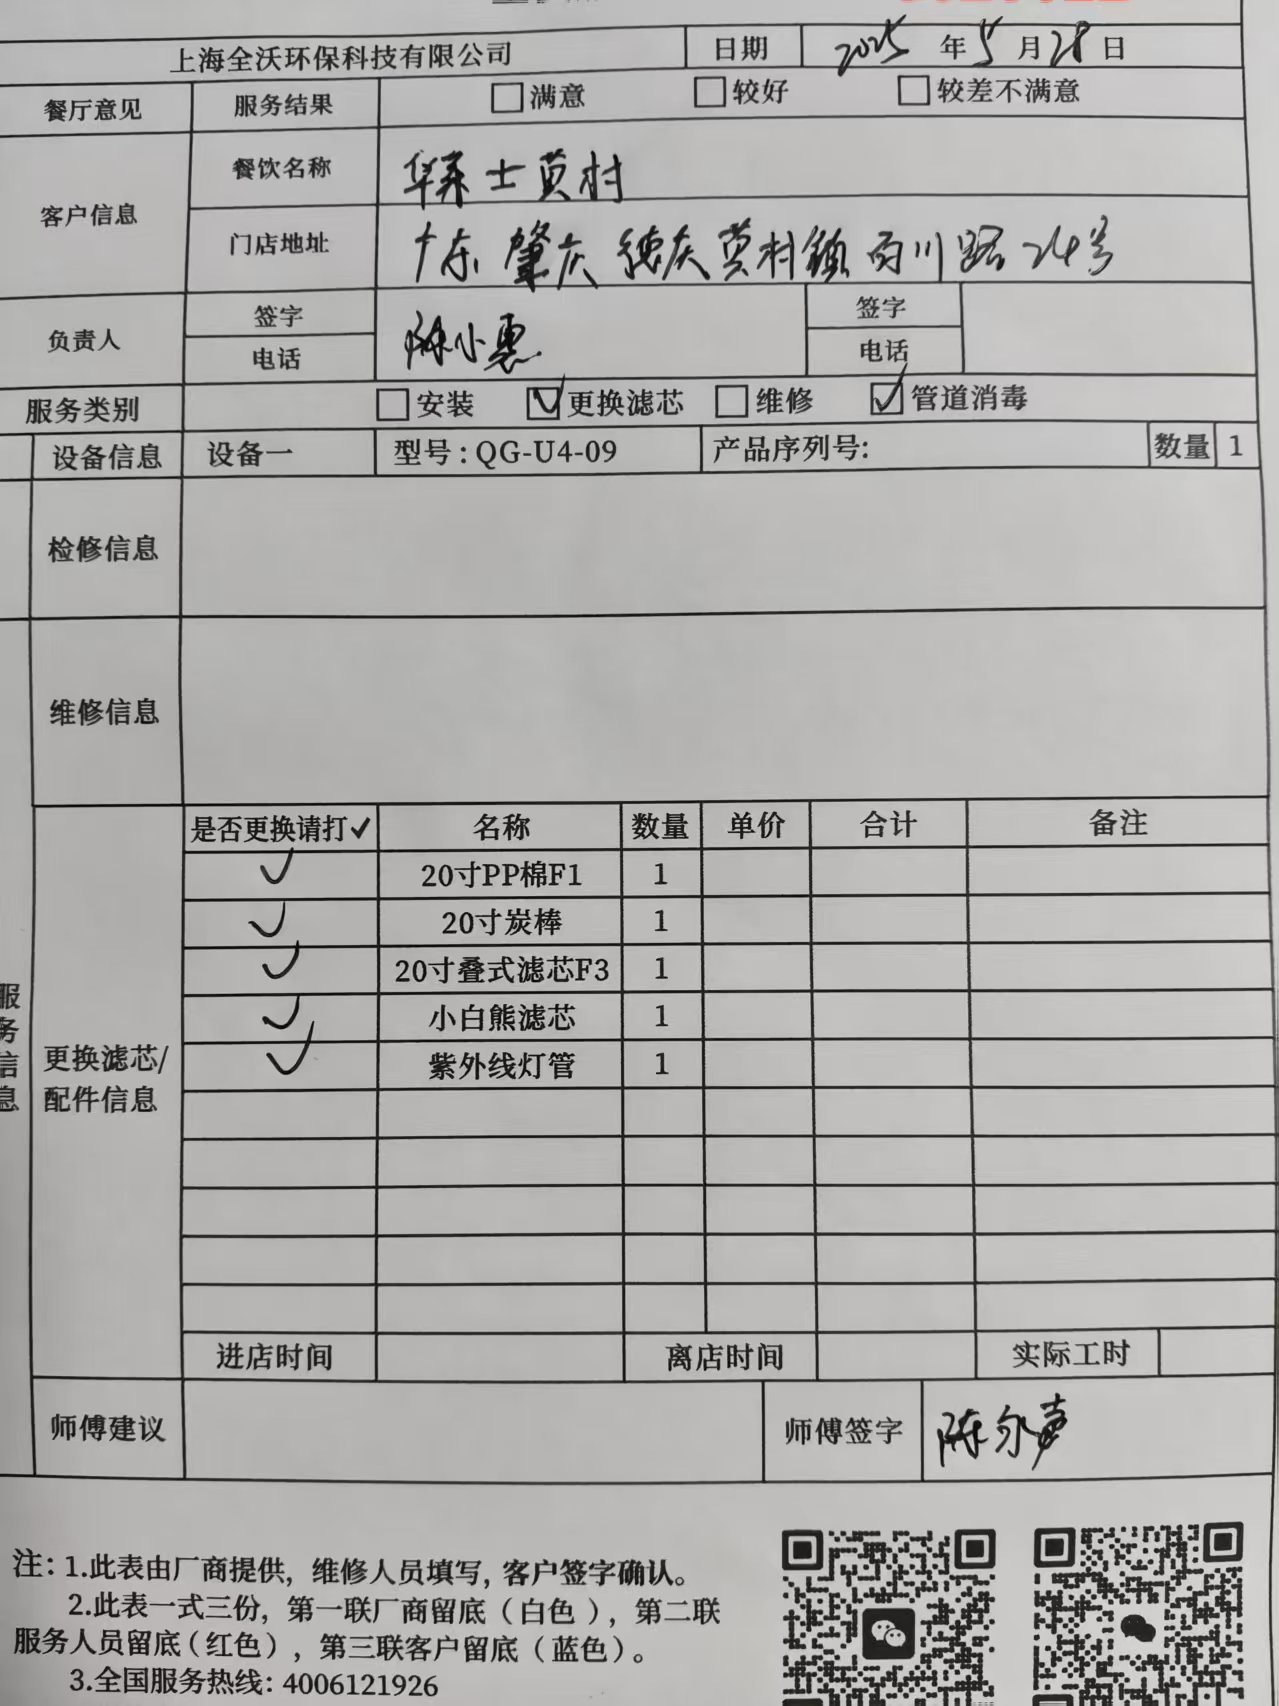 上海全沃环保科技有限公司 日期 2025 年 5 月 28 日
餐厅意见 服务结果 满意 较好 较差不满意
客户信息 餐饮名称 华莱士莫村
门店地址 广东肇庆德庆莫村镇百川路24号
负责人 签字 陈小惠 签字
电话 电话
服务类别 安装 ✓更换滤芯 维修 ✓管道消毒
设备信息 设备一 型号:QG-U4-09 产品序列号: 数量 1
检修信息
维修信息
服务信息
更换滤芯/
配件信息
是否更换请打✓ 名称 数量 单价 合计 备注
✓ 20寸PP棉F1 1
✓ 20寸炭棒 1
✓ 20寸叠式滤芯F3 1
✓ 小白熊滤芯 1
✓ 紫外线灯管 1
进店时间 离店时间 实际工时
师傅建议 师傅签字 陈尔声
注: 1.此表由厂商提供, 维修人员填写, 客户签字确认。
2.此表一式三份, 第一联厂商留底（白色）, 第二联
服务人员留底（红色）, 第三联客户留底（蓝色）。
3.全国服务热线: 4006121926